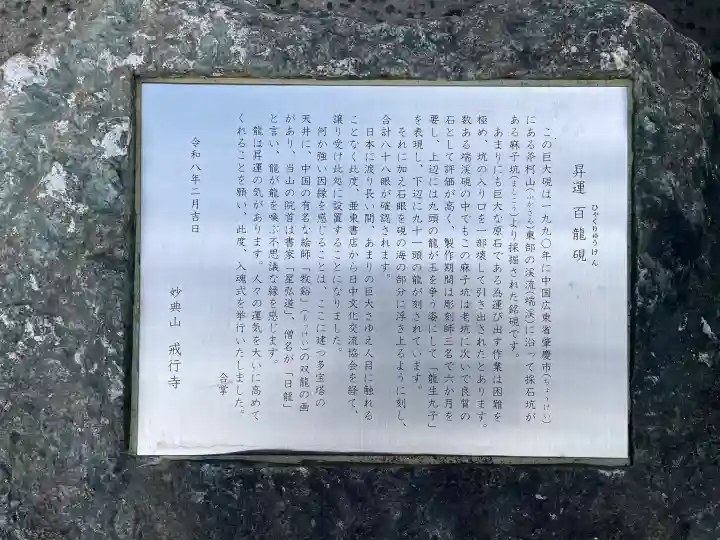 昇運 百龍硯
ひゃくりゅうけん
この巨大硯は一九九〇年に中国広東省肇慶市(ちょうけい)
にある斧柯山(ふかさん)東部の渓流(端渓)に沿って採石坑が
ある麻子坑(ましこう)より採掘された銘硯です。
あまりにも巨大な原石である為運び出す作業は困難を
極め、坑の入り口を一部壊して引き出されたとあります。
数ある端渓硯の中でもこの麻子坑は老坑に次いで良質の
石として評価が高く、製作期間は彫刻師三名で六か月を
要し、上辺には九頭の龍が玉を争う姿にして「龍生九子」
を表現し、下辺に九十一頭の龍が刻されています。
それに加え石眼を硯の海の部分に浮き上るように刻し、
合計八十八眼が確認されます。
日本に渡り長い間、あまりの巨大さゆえ人目に触れる
ことなく此度、亜東書店から日中文化交流協会を経て、
譲り受け此処に設置することになりました。
何か強い因縁を感じることは、ここに建つ多宝塔の
天井に、中国の有名な絵師「牧谿」(もっけい)の双龍の画
があり、当山の院首は書家「星弘道」、僧名が「日龍」
と言い、龍が龍を喚ぶ不思議な縁を感じます。
龍は昇運の気があります。人々の運気を大いに高めて
くれることを願い、此度、入魂式を挙行いたしました。
合掌
令和八年二月吉日
妙典山 戒行寺